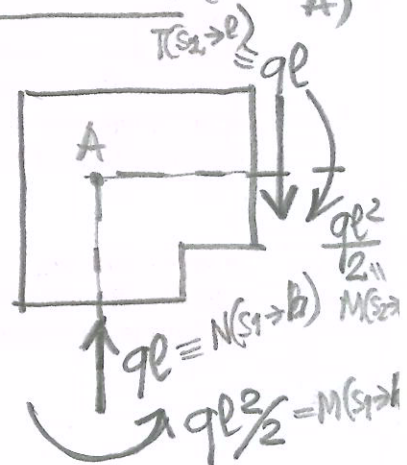 A)
T(s₂→l)
≡ ql
A
ql²/2
M(s₂→
ql ≡ N(s₁→h)
ql²/2 = M(s₁→h